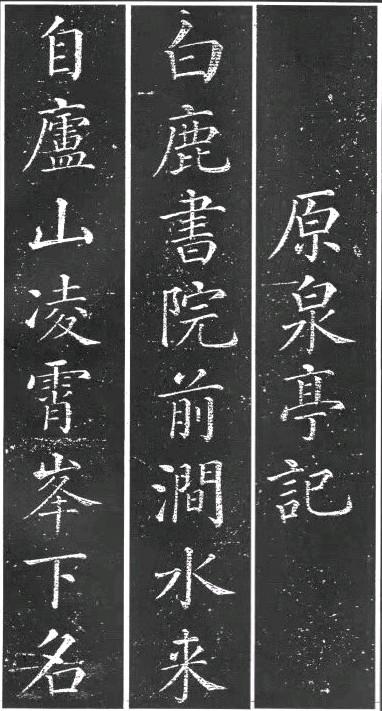 原泉亭記
白鹿書院前澗水来
自廬山凌霄峯下名